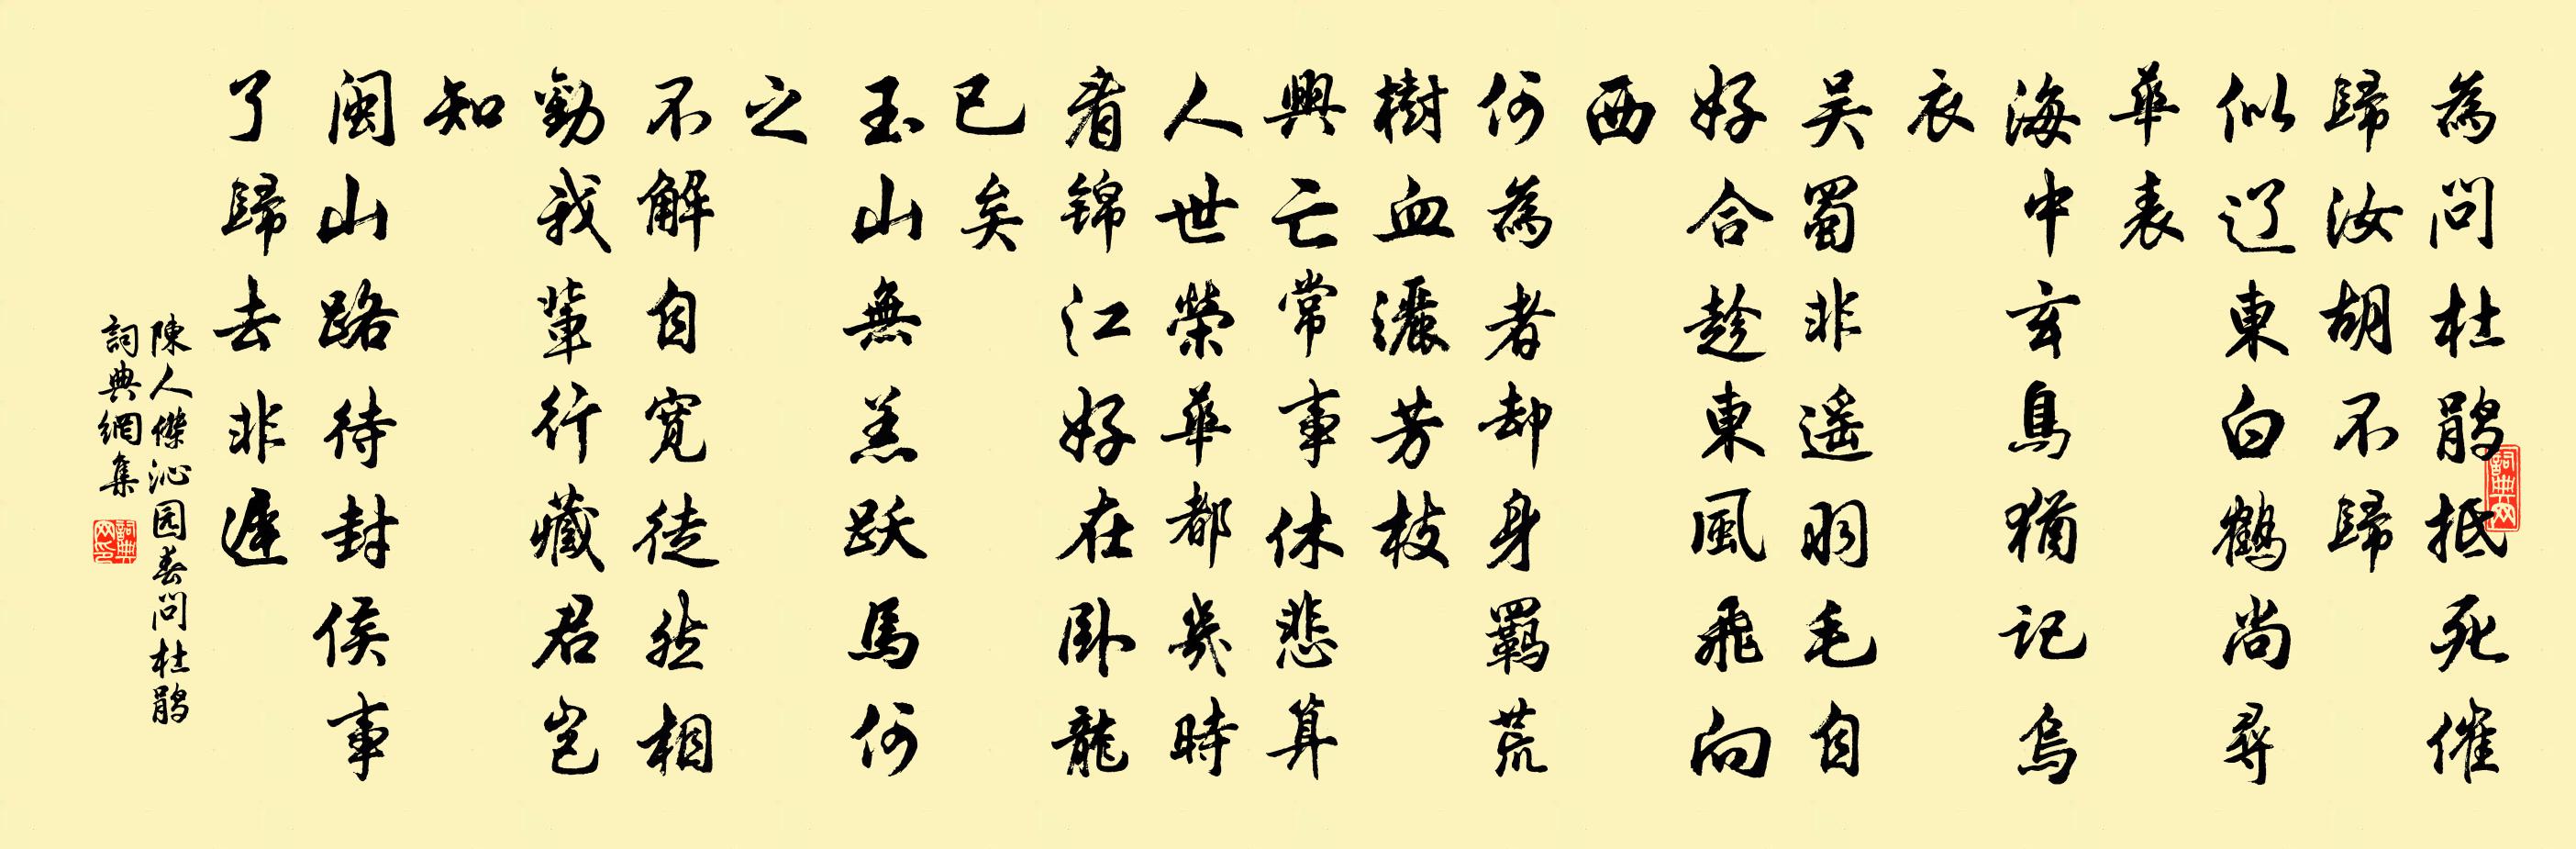 為问杜鹃抵死催
歸汝胡不歸
似辽東白鶴尚尋
華表
海中玄鳥猶记烏
衣
吴蜀非遥羽毛自
好合趁東風飛向
西
何為者却身羁荒
樹血灑芳枝
興亡常事休悲算
人世榮華都幾時
看锦江好在卧龍
已矣
玉山無恙跃馬何
之
不解自宽徒然相
勸我輩行藏君岂
知
闽山路待封侯事
了歸去非遲
陳人傑沁园春问杜鹃
詞典網集
詞典网
詞典网印